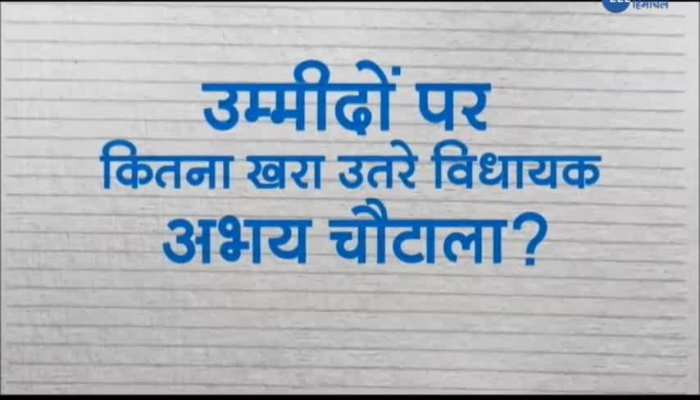 हिमाचल
उम्मीदों पर
कितना खरा उतरे विधायक
अभय चौटाला?